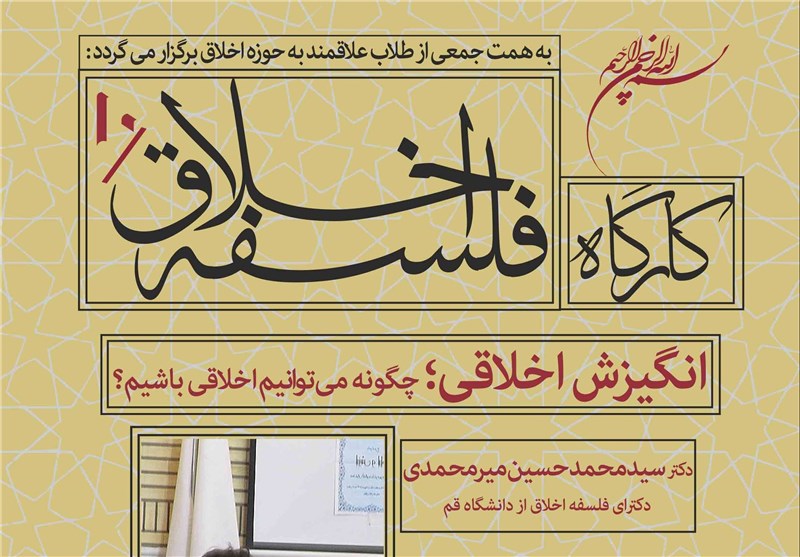 بسم الله الرحمن الرحیم
به همت جمعی از طلاب علاقمند به حوزه اخلاق برگزار می گردد:
کارگاه
فلسفه اخلاق
۱۰
انگیزش اخلاقی؛ چگونه می‌توانیم اخلاقی باشیم؟
دکتر سیدمحمدحسین میرمحمدی
دکترای فلسفه اخلاق از دانشگاه قم